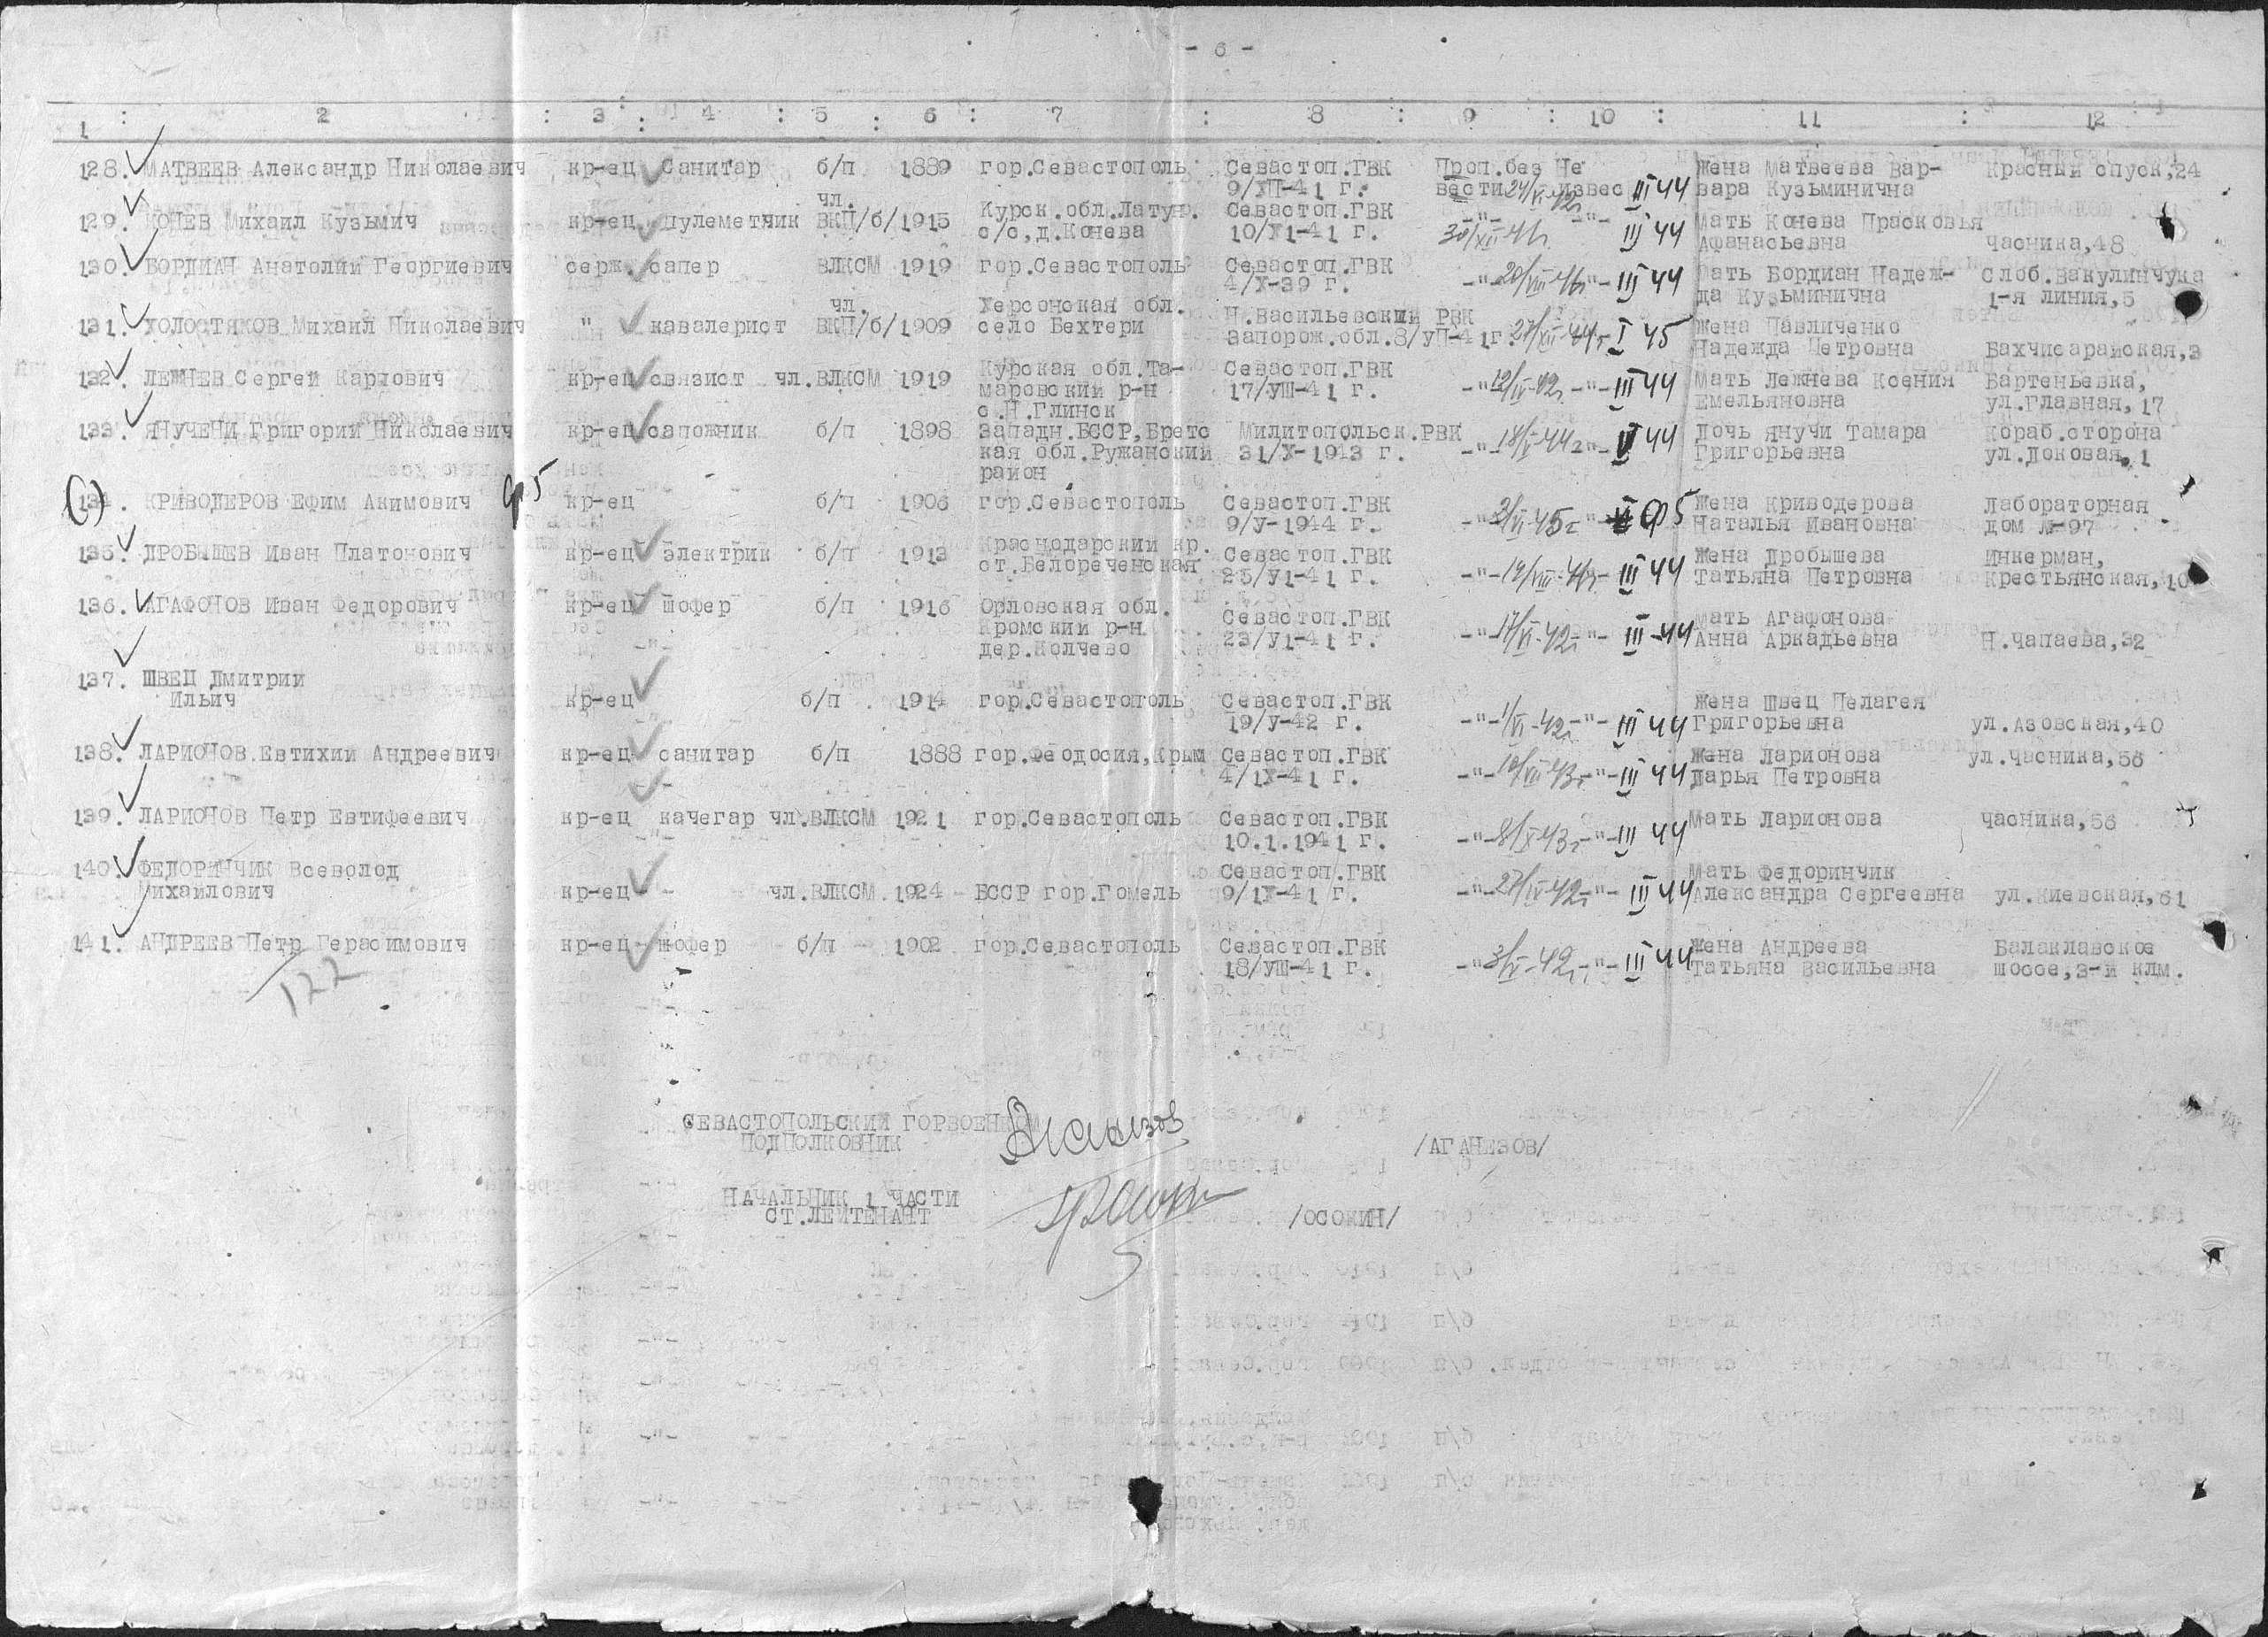 - 6 -
1 : 2 : 3 : 4 : 5 : 6 : 7 : 8 : 9 : 10 : 11 : 12
128. МАТВЕЕВ Александр Николаевич кр-ец Санитар б/п 1889 гор.Севастополь Севастоп.ГВК Проп.без Не Жена Матвеева Вар- Красный спуск,24
9/УП-41 г. вести извес III 44 вара Кузьминична
чл.
129. КОНЕВ Михаил Кузьмич кр-ец пулеметчик ВКП/б/ 1915 Курск.обл.Латун. Севастоп.ГВК -"- -"- Мать Конева Прасковья
с/с,д.Конева 10/Х1-41 г. III 44 Афанасьевна Часника,48
130. БОРДИАН Анатолий Георгиевич серж. сапер ВЛКСМ 1919 гор.Севастополь Севастоп.ГВК Мать Бордиан Надеж- Слоб.Вакулинчука
4/Х-39 г. -"- -"- III 44 да Кузьминична 1-я линия,5
чл. Херсонская обл.
131. ХОЛОСТЯКОВ Михаил Николаевич " кавалерист ВКП/б/ 1909 село Бехтери Н.Васильевский РВК Жена Павличенко
Запорож.обл.8/УП-41г. I 45 Надежда Петровна Бахчисарайская,3
132. ЛЕЖНЕВ Сергей Карлович кр-ец связист чл.ВЛКСМ 1919 Курская обл.Та- Севастоп.ГВК Мать Лежнева Ксения Бартеньевка,
маровский р-н 17/УШ-41 г. -"- -"- III 44 Емельяновна ул.Главная,17
с.Н.Глинск
133. ЯНУЧЕНИ Григорий Николаевич кр-ец сапожник б/п 1898 Западн.БССР,Бретс Милитопольск.РВК Дочь Янучи Тамара Кораб.сторона
кая обл.Ружанский 31/Х-1943 г. -"- -"- 44 Григорьевна ул.Доковая,1
район
134. КРИВОДЕРОВ Ефим Акимович ф5 кр-ец б/п 1906 гор.Севастополь Севастоп.ГВК Жена Криводерова Лабораторная
9/У-1944 г. -"- ф5 Наталья Ивановна дом №-97
135. ДРОБЫШЕВ Иван Платонович кр-ец электрик б/п 1913 Краснодарский кр. Севастоп.ГВК Жена Дробышева Инкерман,
ст.Белореченская 25/У1-41 г. -"- III 44 Татьяна Петровна Крестьянская,10
136. АГАФОНОВ Иван Федорович кр-ец шофер б/п 1916 Орловская обл. Севастоп.ГВК Мать Агафонова
Кромский р-н 23/У1-41 г. -"- 17/VI-42г -"- III-44 Анна Аркадьевна Н.Чапаева,32
дер.Колчево
137. ШВЕЦ Дмитрий
Ильич кр-ец б/п 1914 гор.Севастополь Севастоп.ГВК Жена Швец Пелагея
19/У-42 г. -"- 1/VI-42г -"- III 44 Григорьевна ул.Азовская,40
138. ЛАРИОНОВ Евтихий Андреевич кр-ец санитар б/п 1888 гор.Феодосия,Крым Севастоп.ГВК Жена Ларионова ул.Часника,56
4/1Х-41 г. -"- -"- III 44 Дарья Петровна
139. ЛАРИОНОВ Петр Евтифеевич кр-ец качегар чл.ВЛКСМ 1921 гор.Севастополь Севастоп.ГВК Мать Ларионова Часника,56
10.1.1941 г. -"- 8/X-43г -"- III 44
140. ФЕДОРИНЧИК Всеволод Севастоп.ГВК Мать Федоринчик
Михайлович кр-ец - чл.ВЛКСМ 1924 БССР гор.Гомель 9/1Х-41 г. -"- -"- III 44 Александра Сергеевна ул.Киевская,61
141. АНДРЕЕВ Петр Герасимович кр-ец шофер б/п 1902 гор.Севастополь Севастоп.ГВК Жена Андреева Балаклавское
18/УШ-41 г. -"- -"- III 44 Татьяна Васильевна шосое,3-й клм.
122
СЕВАСТОПОЛЬСКИЙ ГОРВОЕНКОМ
ПОДПОЛКОВНИК /АГАНЕЗОВ/
НАЧАЛЬНИК 1 ЧАСТИ
СТ.ЛЕЙТЕНАНТ /ОСОКИН/